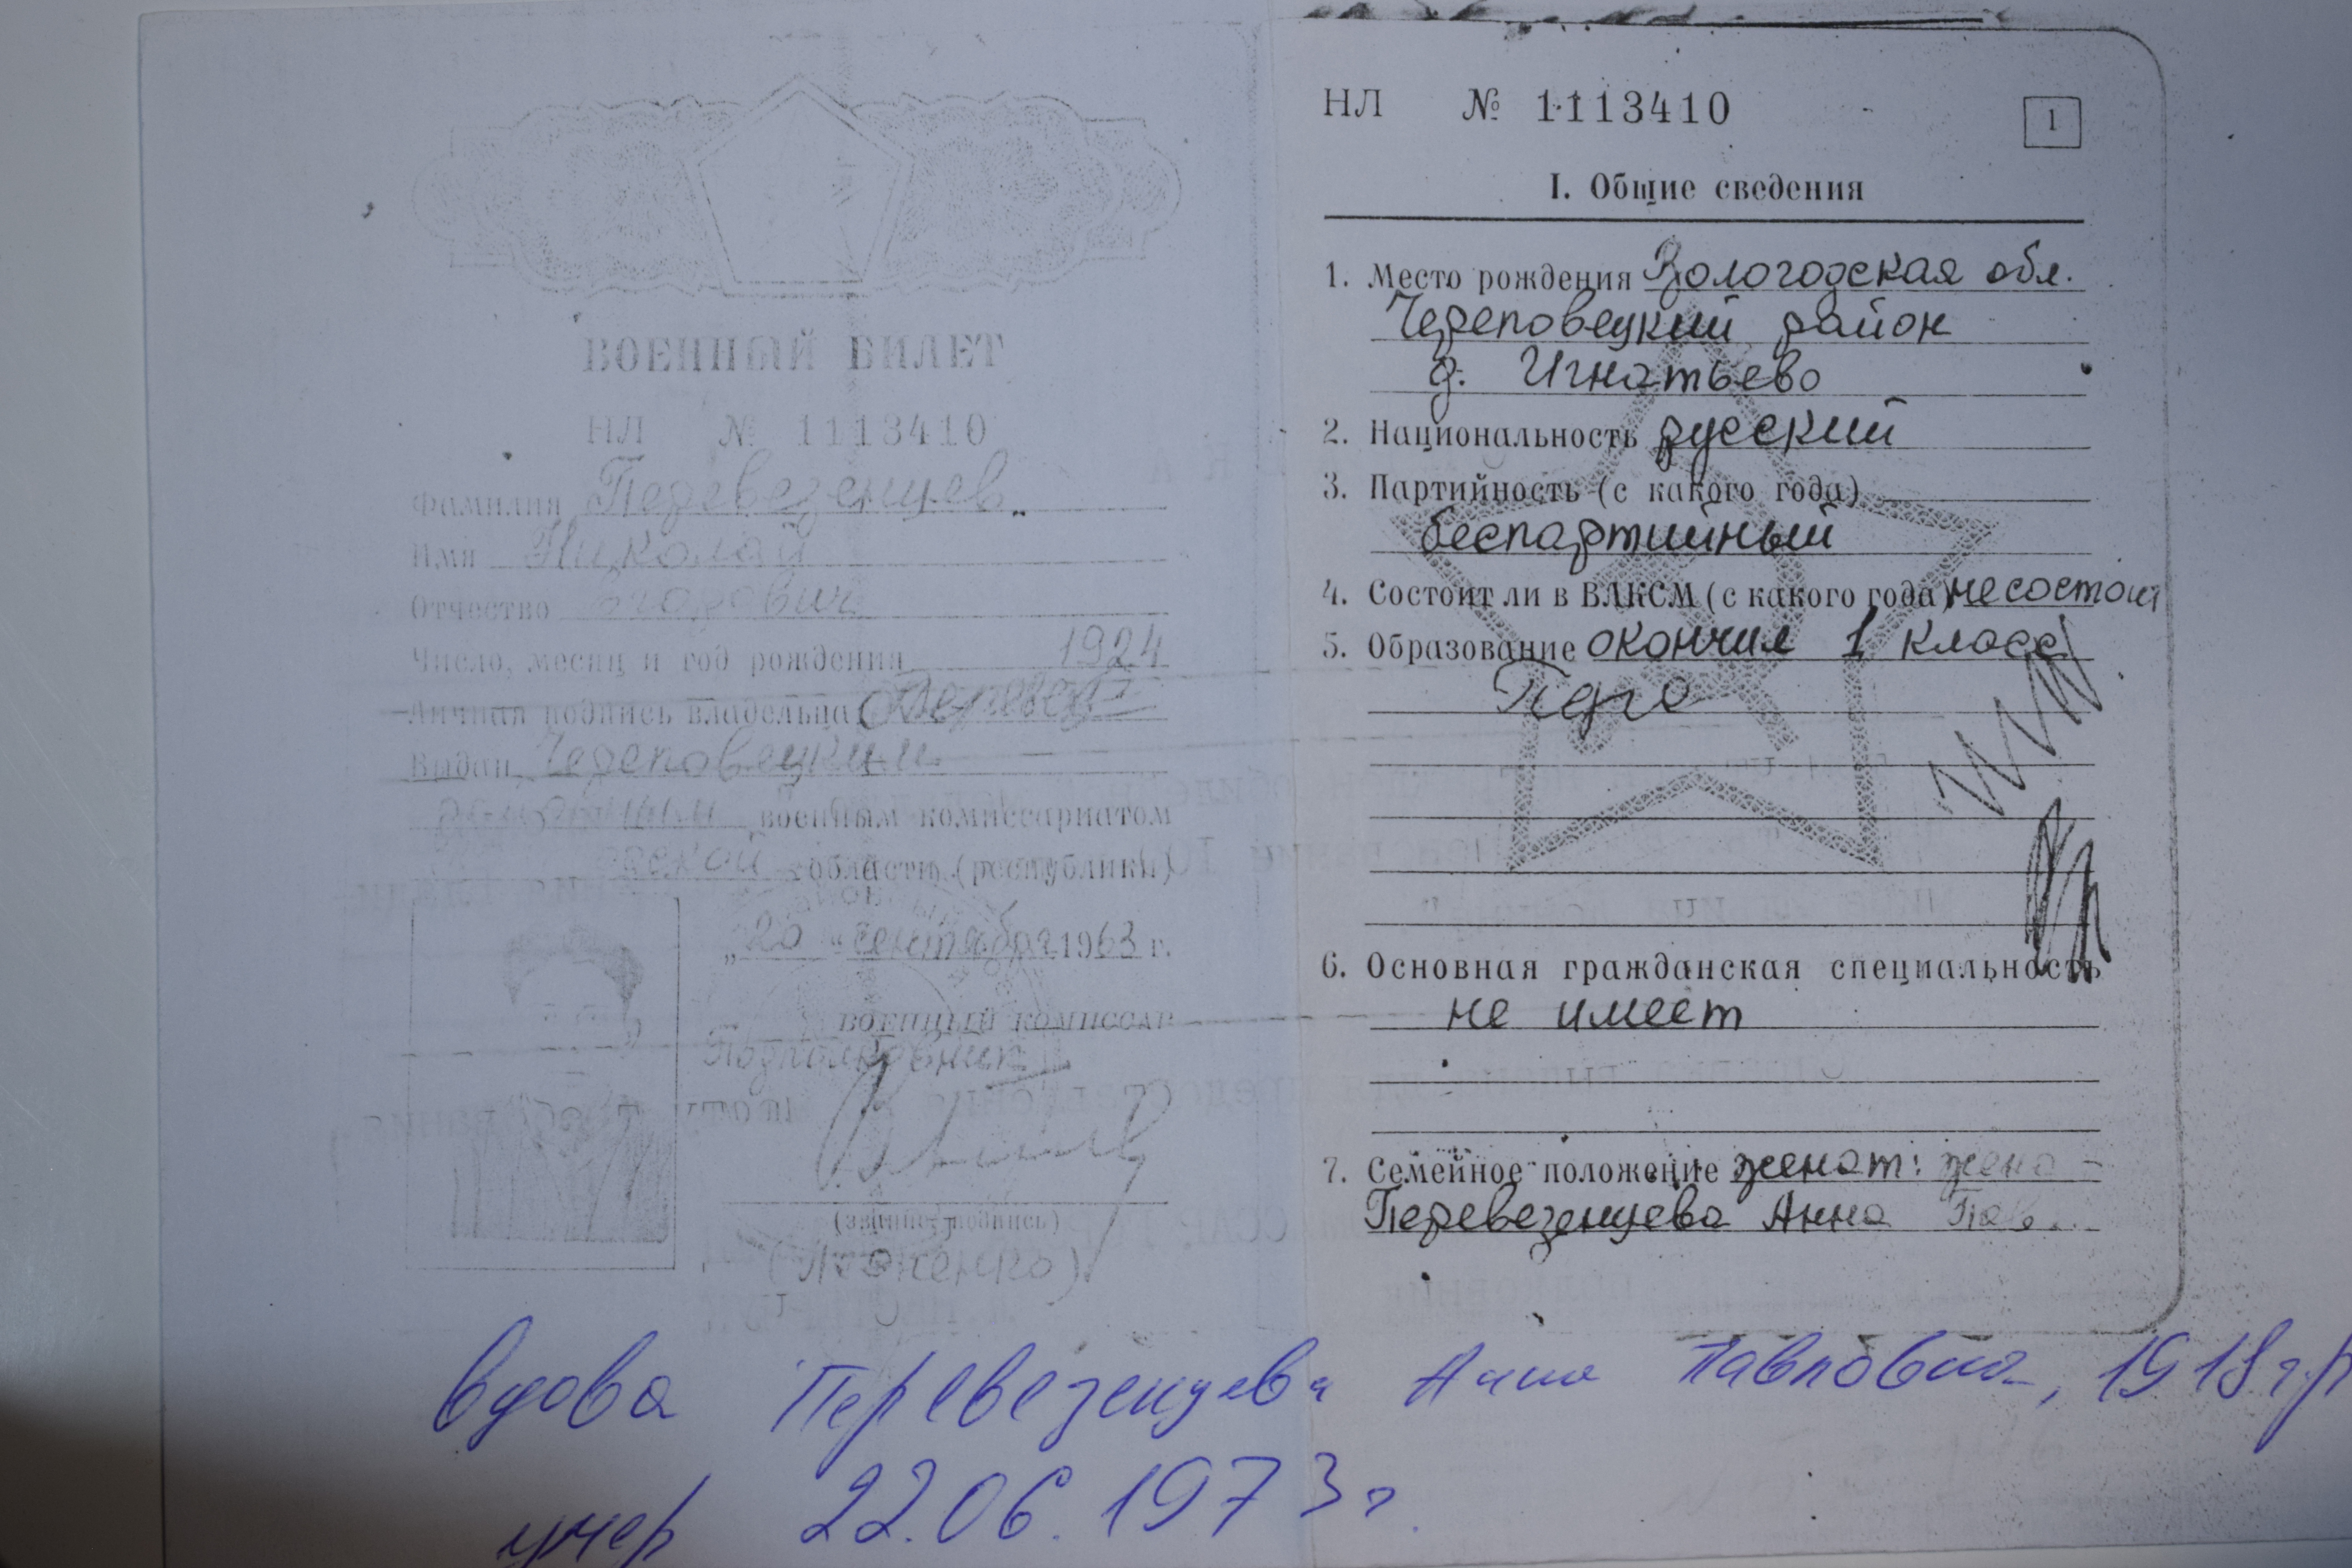 ВОЕННЫЙ БИЛЕТ
НЛ № 1113410
Фамилия Перевезенцев
Имя Николай
Отчество
Число, месяц и год рождения 1924
Личная подпись владельца
Выдан Череповецким
военным комиссариатом
области (республики)
„20" сентября 1963 г.
военный комиссар
Подполковник
(звание, подпись)
НЛ № 1113410
1
I. Общие сведения
1. Место рождения Вологодская обл.
Череповецкий район
д. Игнатьево
2. Национальность русский
3. Партийность (с какого года)
беспартийный
4. Состоит ли в ВЛКСМ (с какого года) не состоит
5. Образование окончил 1 класс
6. Основная гражданская специальность
не имеет
7. Семейное положение женат: жена -
Перевезенцева Анна Пав..
вдова Перевезенцева Анна Павловна, 1918 г.р
умер 22.06.1973 г.